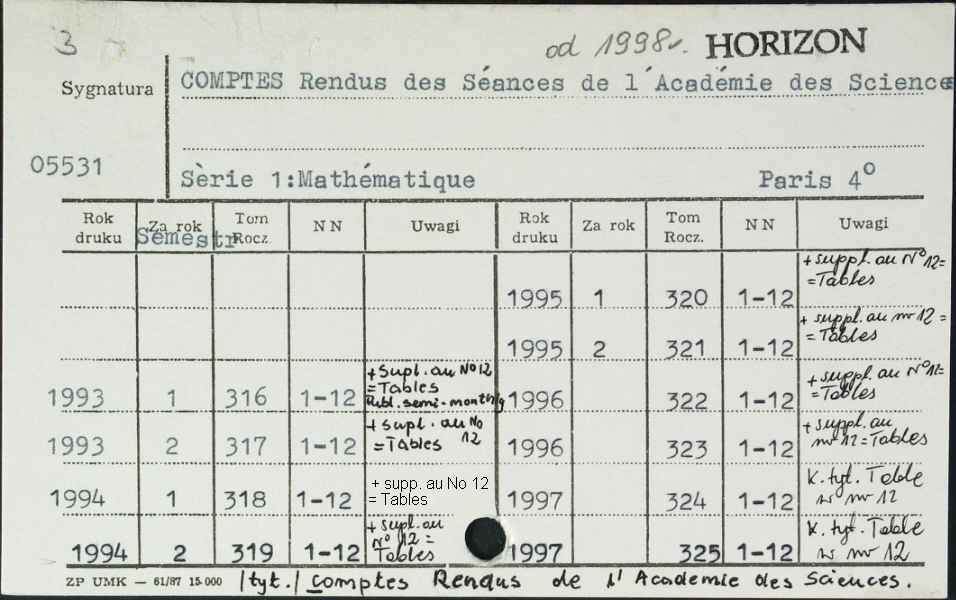 3 od 1998r. HORIZON
Sygnatura COMPTES Rendus des Séances de l'Académie des Science
05531
Sèrie 1:Mathématique Paris 4º
Rok druku Za rok Semestr Tom Rocz. NN Uwagi Rok druku Za rok Tom Rocz. NN Uwagi
1995 1 320 1-12 + suppl. au Nº 12 = = Tables
1995 2 321 1-12 + suppl. au nr 12 = = Tables
1993 1 316 1-12 + Supl. au No 12 = Tables Publ. semi-monthly 1996 322 1-12 + suppl. au Nº 12 = = Tables
1993 2 317 1-12 + supl. au No 12 = Tables 1996 323 1-12 + suppl. au nr 12 = Tables
1994 1 318 1-12 + supp. au No 12 = Tables 1997 324 1-12 K. tyt. Table w nr 12
1994 2 319 1-12 + supl. au Nº 12 = Tables 1997 325 1-12 K. tyt. Table w nr 12
ZP UMK — 61/87 15.000 /tyt./ Comptes Rendus de l'Academie des Sciences.